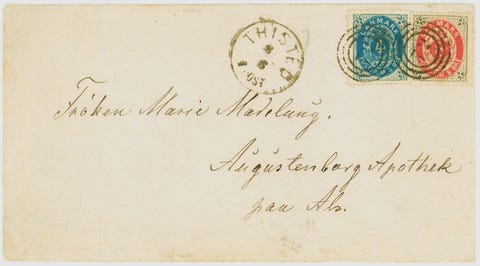 THISTED
DANMARK
DANMARK
Fröken Marie Madelung.
Augustenborg Apothek
paa Als.